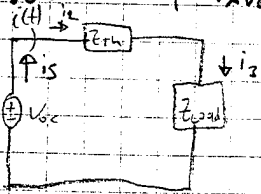 i(t)
i2
ZTh
i5
i3
Voc
ZLoad